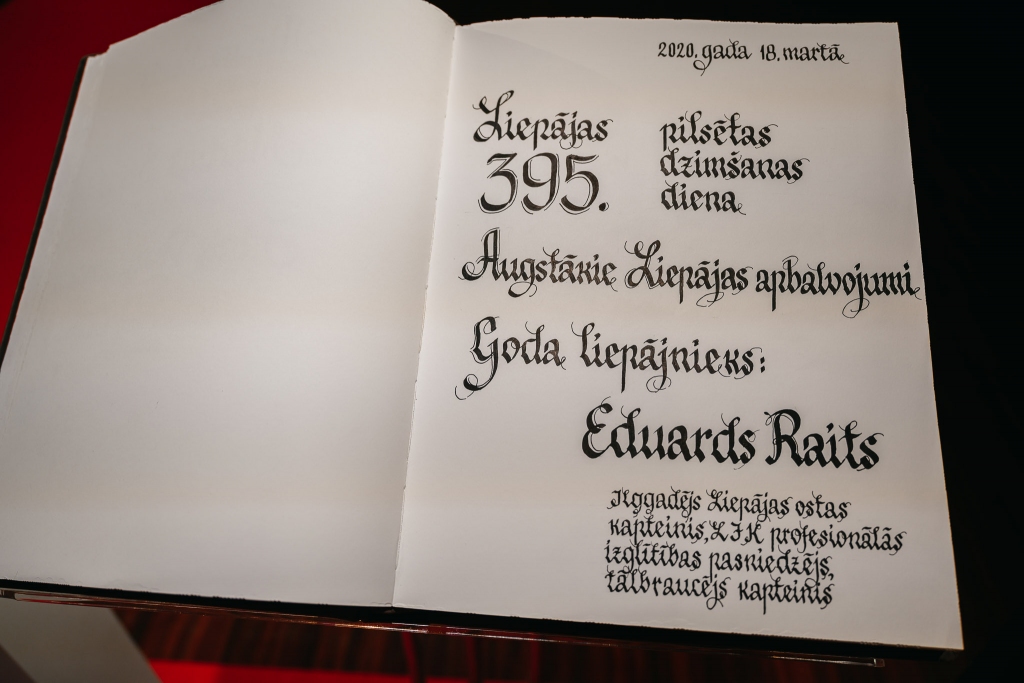 2020. gada 18. martā
Liepājas pilsētas
395. dzimšanas
diena
Augstākie Liepājas apbalvojumi
Goda liepājnieks:
Eduards Raits
Ilggadējs Liepājas ostas
kapteinis, LJK profesionālās
izglītības pasniedzējs,
tālbraucējs kapteinis